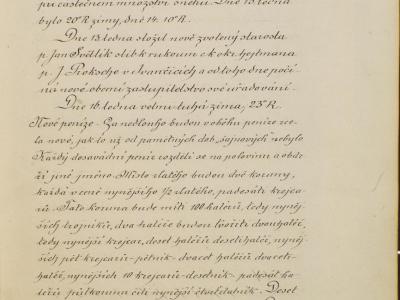 při částečném množství sněhu. Dne 13. ledna
bylo 20° R zimy, dne 14. 10° R.
Dne 15 ledna složil nově zvolený starosta
p. Jan Světlík slib k rukoum c.k. okr. hejtmana
p. J Proksche v Ivančicích a od toho dne počí-
ná nové obecní zastupitelstvo své úřadování.
Dne 16. ledna velmi tuhá zima, 23° R.
Nové peníze. Za nedlouho budou v oběhu peníze ze-
la nové, jak to už od pamětných dob, šajnových nebylo
Každý dosavádní peníz rozdělí se na polovinu a obdr-
ží jiné jméno. Místo zlatého budou dvě koruny,
každá v ceně nynějšího 1/2 zlatého, padesáti krejca-
rů. Tato koruna bude míti 100 haléřů, tedy nyněj-
ších trojníků, dva haléře budou tvořiti dvouhaléř,
tedy nynější krejcar, deset haléřů desetihaléř, nyněj-
ších pět krejcarů - pětník - dvacet haléřů dvaceti-
haléř, nynějších 10 krejcarů - desetník - padesát ha-
léřů půlkorunu čili nynější čtvrtzlatník. Deset